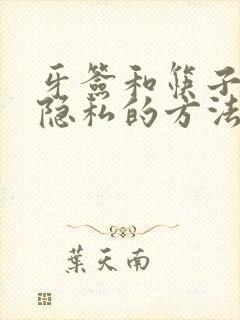 牙签和筷子
隐私的方法
葉天南